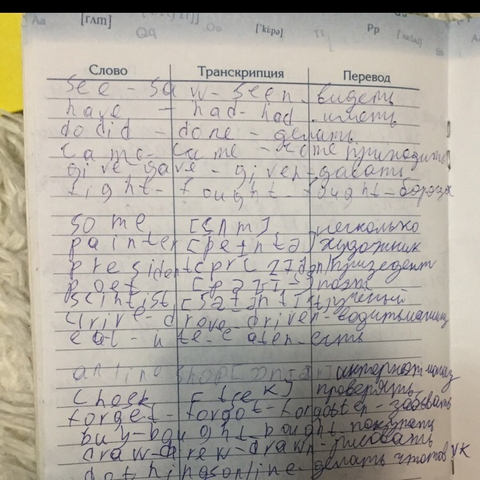 Aa [гʌm] Qq Oo ['kɪpə] Tt Pp Ss Aa
Слово Транскрипция Перевод
see - saw - seen видеть
have - had - had иметь
do did - done - делать
came - came - come приходить
give - gave - given - давать
fight - fought - fought - борьба
some [sʌm] несколько
painter [peɪntə] художник
president президент
poet поэт
scintist учёный
drive - drove - driven - водить машину
eat - ate - eaten - есть
online shop интернет магаз
check [tʃek] проверять
forget - forgot - forgotten - забывать
buy - bought - bought покупать
draw - drew - drawn - рисовать
do things online - делать что-то в